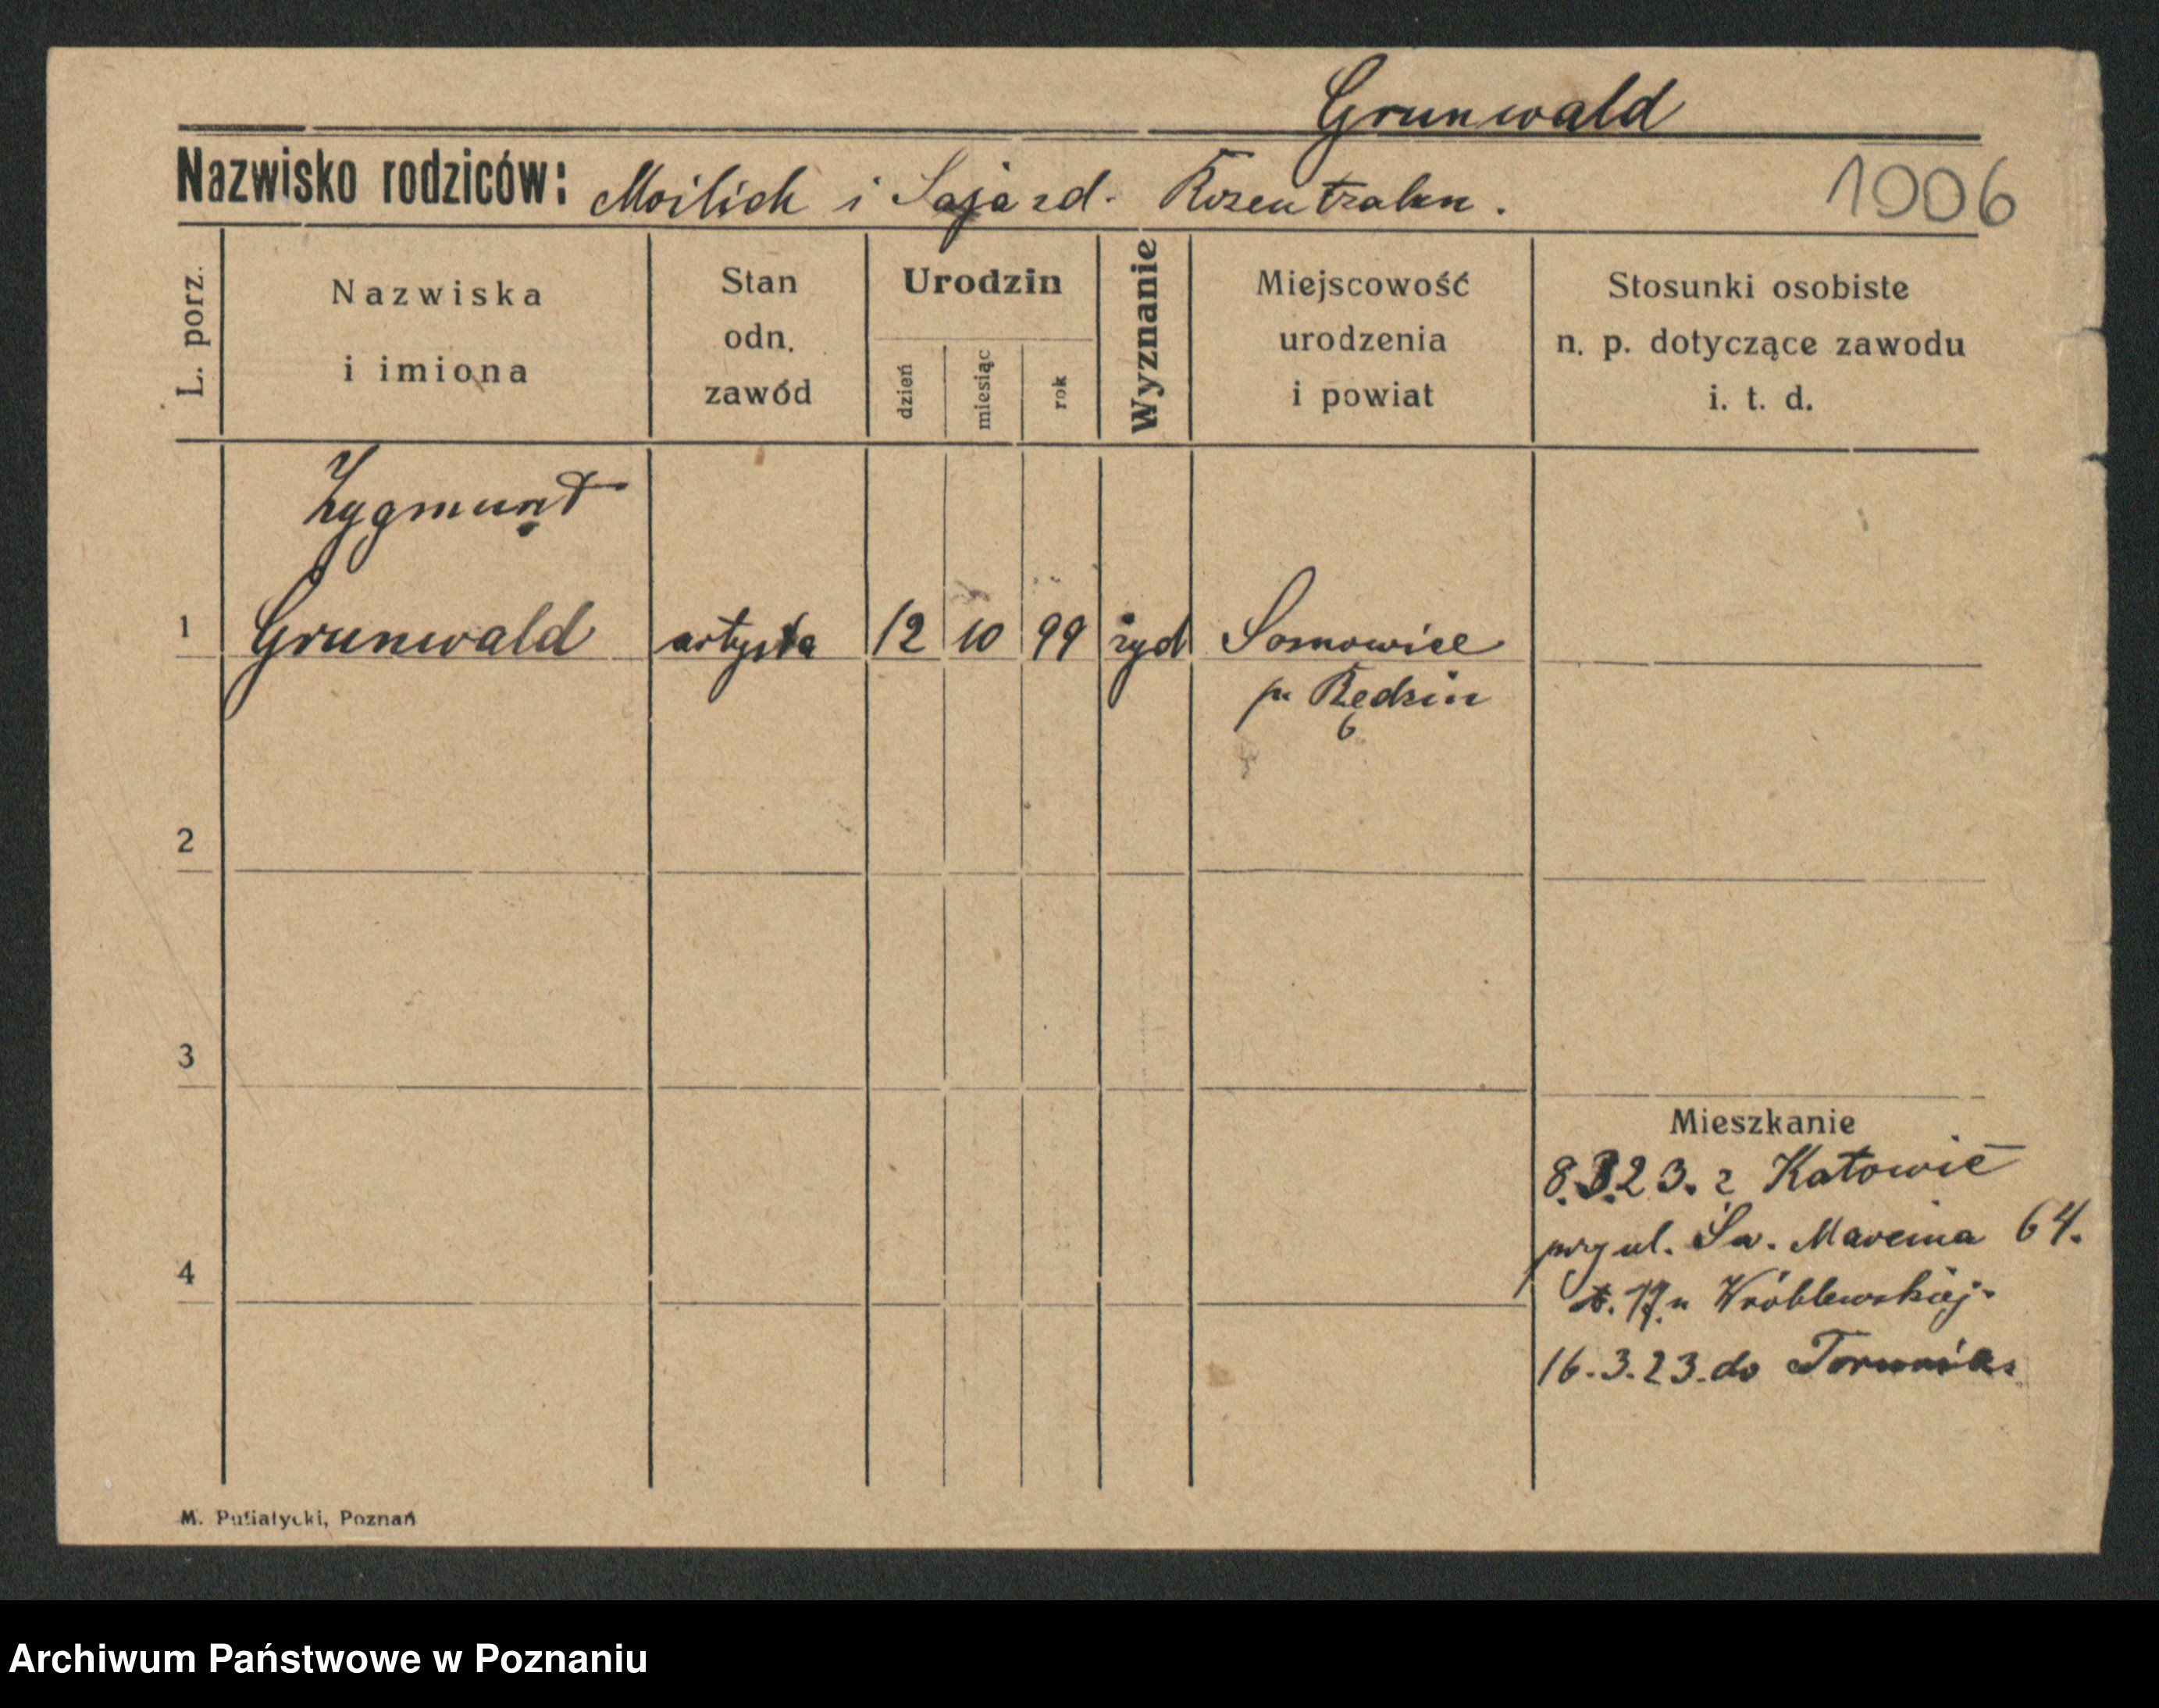 Grunwald
Nazwisko rodziców: Moilich i Saja zd. Rozentralen.
1006
L. porz.
Nazwiska
i imiona
Stan
odn.
zawód
Urodzin
dzień
miesiąc
rok
Wyznanie
Miejscowość
urodzenia
i powiat
Stosunki osobiste
n. p. dotyczące zawodu
i. t. d.
Zygmunt
1 Grunwald artysta 12 10 99 żyd Sosnowice
p. Będzin
2
3
4
Mieszkanie
8.3.23. z Katowic
przy ul. Św. Marcina 64.
17 u Wróblewskiej.
16.3.23. do Torunia
M. Putiatycki, Poznań
Archiwum Państwowe w Poznaniu